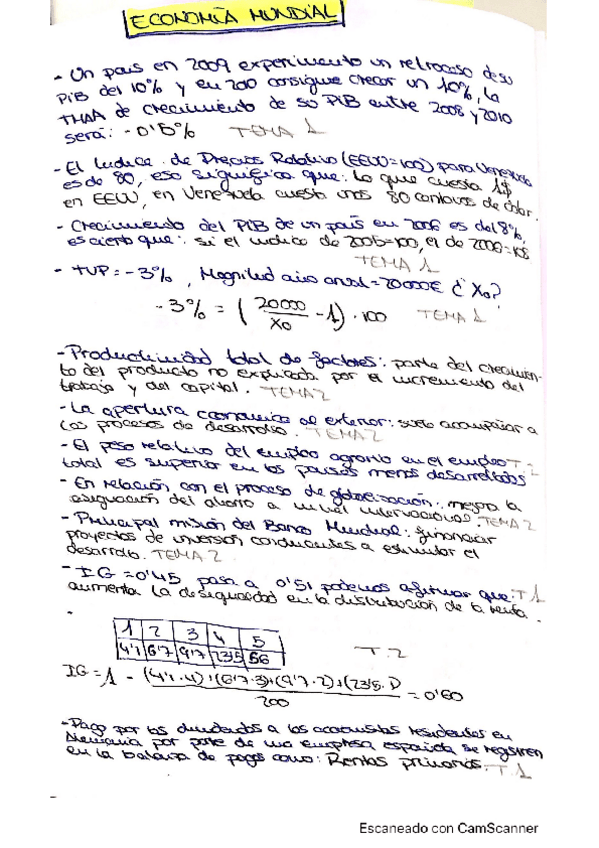 ECONOMÍA MUNDIAL
- Un país en 2009 experimento un retroceso de su
PIB del 10% y en 2010 consigue crecer un 10%, la
TMAA de crecimiento de su PIB entre 2008 y 2010
será: -0'5% TEMA 1
- El Indice de Precios Relativo (EEUU=100) para Venezuela
es de 80, eso significa que: Lo que cuesta 1$
en EEUU, en Venezuela cuesta unos 80 centavos de dolar.
- Crecimiento del PIB de un país en 2006 es del 8%,
es cierto que: si el indice de 2005=100, el de 2006=108
TEMA 1
- TVP = -3%, Magnitud año anual = 20000€ ¿X0?
-3% = (20000/X0 - 1) · 100 TEMA 1
- Productividad total de factores: parte del crecimien-
to del producto no explicada por el incremento del
trabajo y del capital. TEMA 2
- La apertura economica al exterior: suele acompañar a
los procesos de desarrollo. TEMA 2
- El peso relativo del empleo agrario en el empleo T.2
total es superior en los países menos desarrollados
- En relación con el proceso de globalización: mejora la
asignación del ahorro a nivel internacional. TEMA 2
- Principal misión del Banco Mundial: financiar
proyectos de inversión conducentes a estimular el
desarrollo. TEMA 2
- IG = 0'45 pasa a 0'51 podemos afirmar que: T.1
aumenta la desigualdad en la distribución de la renta.
-
1 2 3 4 5
4'1 6'7 9'7 23'5 56
T.2
IG = 1 - (4'1·4)+(6'7·3)+(9'7·2)+(23'5·1)/200 = 0'60
- Pago por los dividendos a los accionistas residentes en
Alemania por parte de una empresa española se registran
en la balanza de pagos como: Rentas primarias. T.1
Escaneado con CamScanner